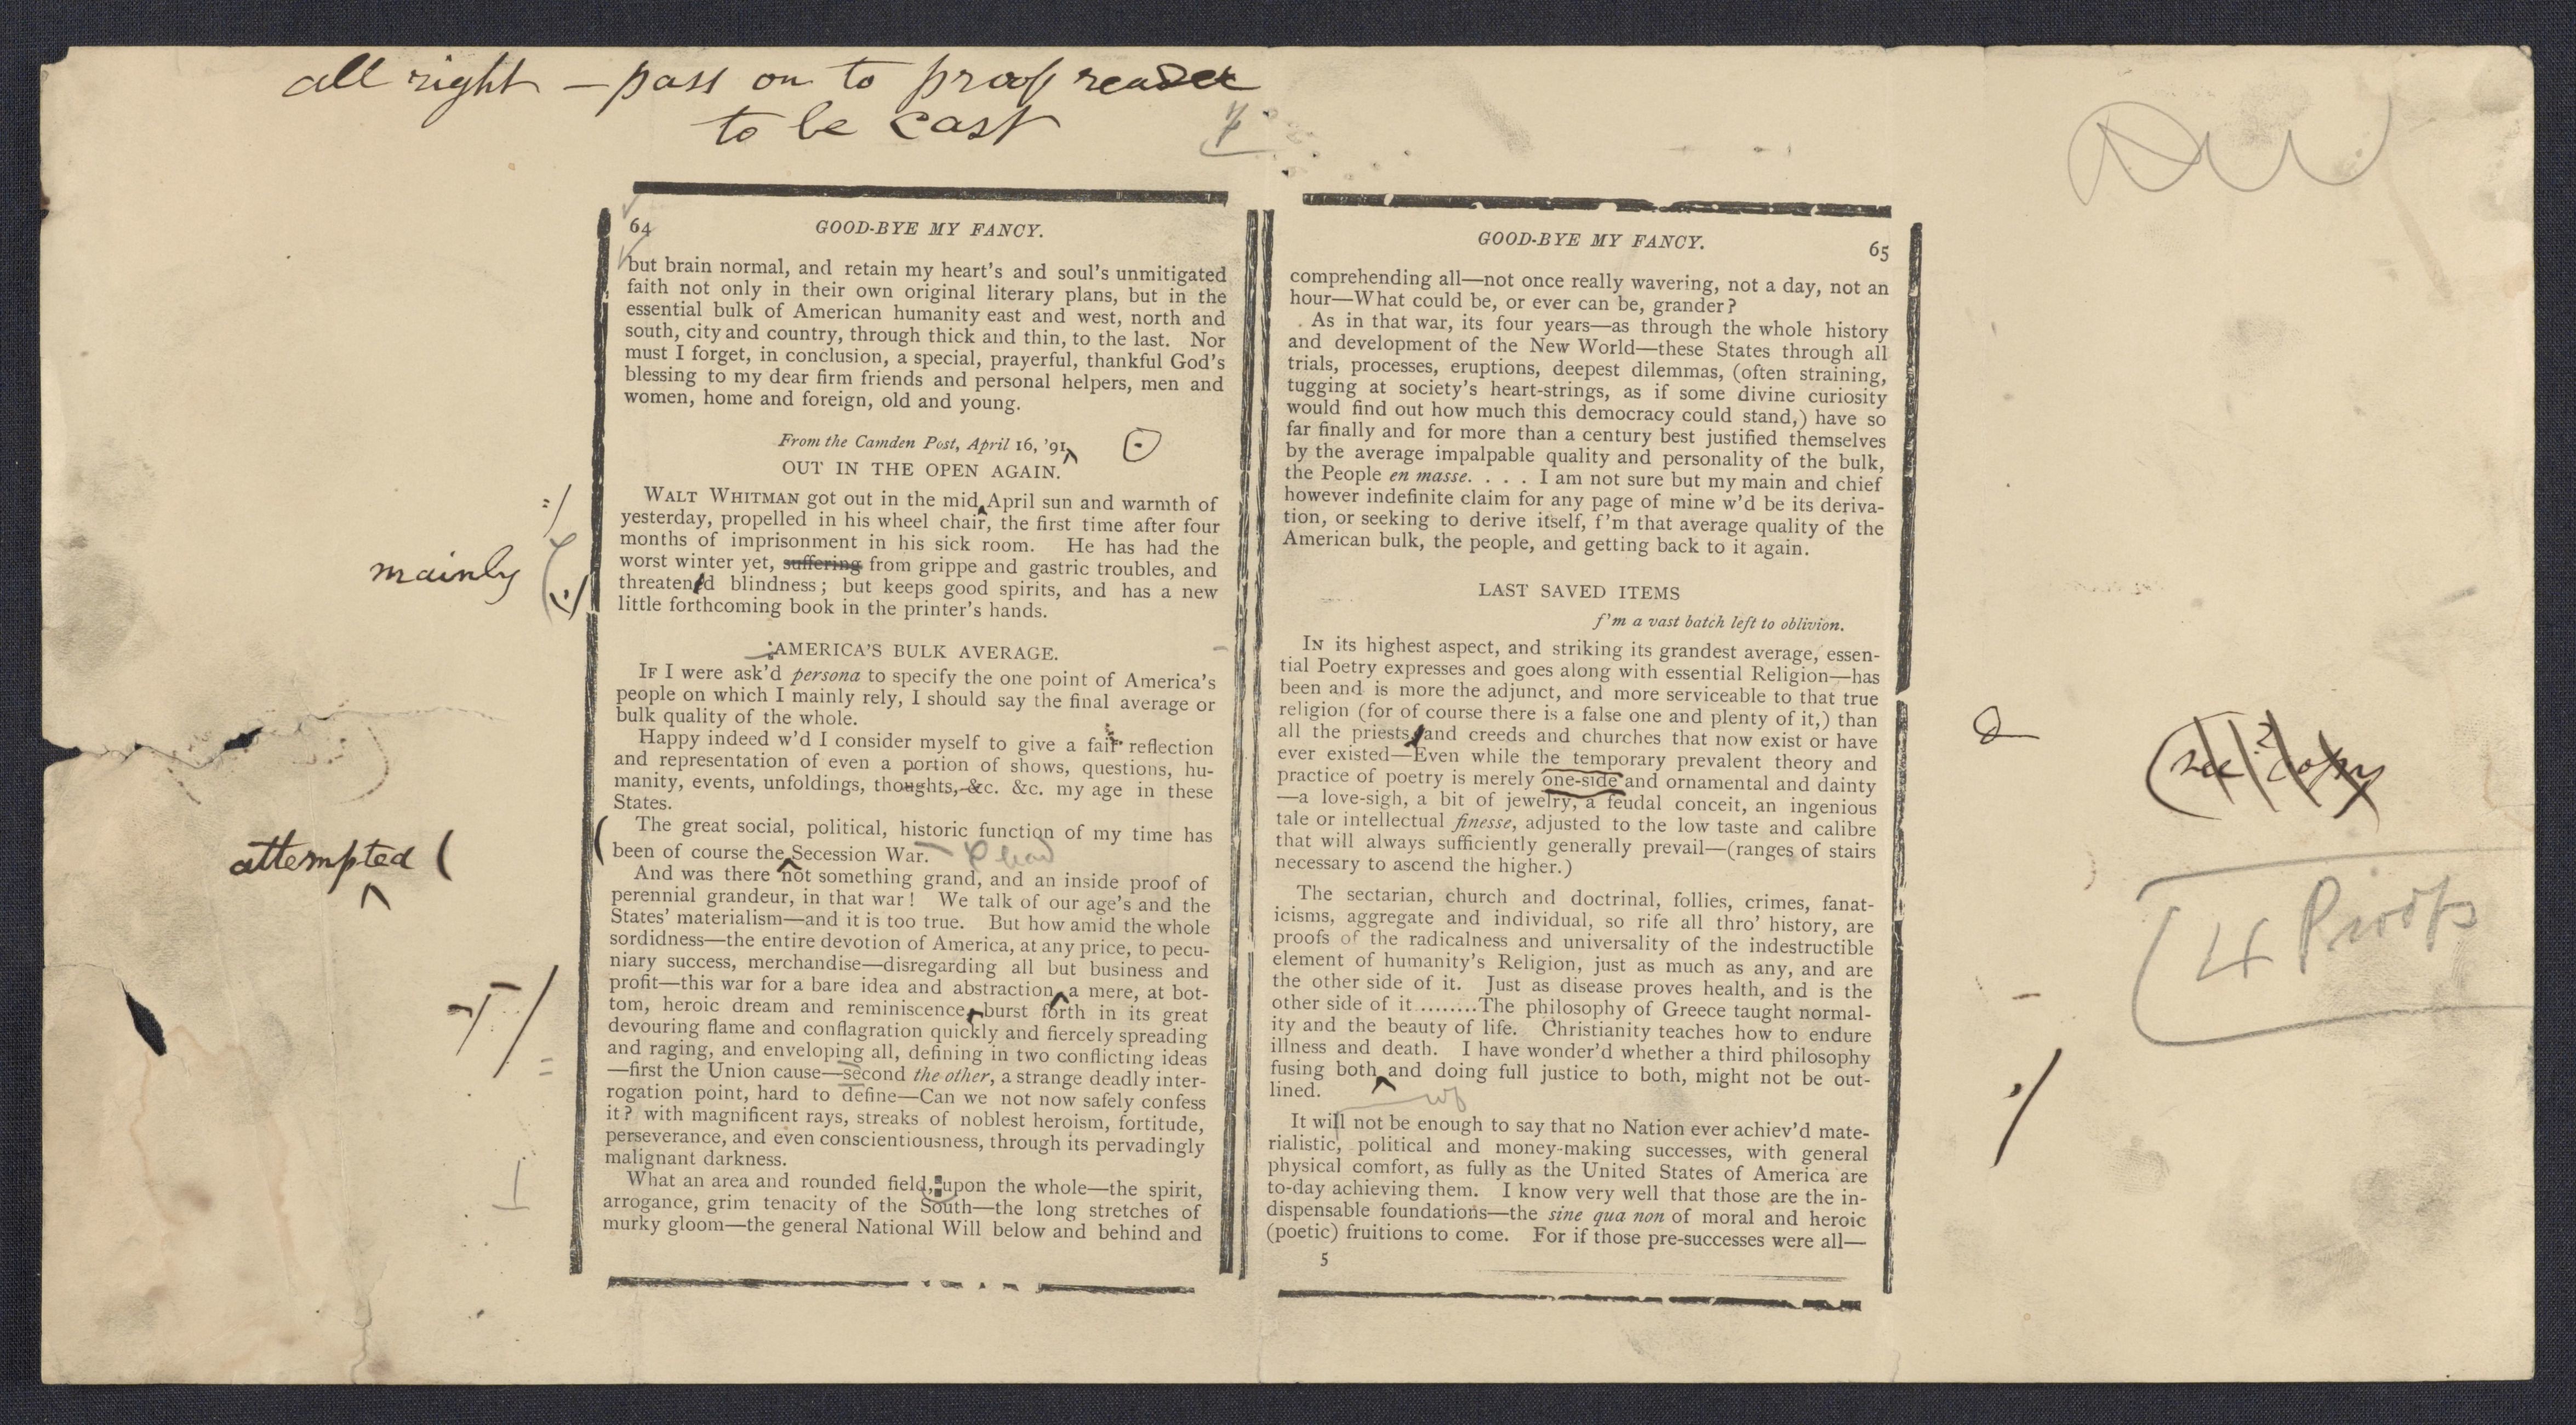 all right – pass on to proof reader
to be cast
64
GOOD-BYE MY FANCY.
but brain normal, and retain my heart's and soul's unmitigated
faith not only in their own original literary plans, but in the
essential bulk of American humanity east and west, north and
south, city and country, through thick and thin, to the last. Nor
must I forget, in conclusion, a special, prayerful, thankful God's
blessing to my dear firm friends and personal helpers, men and
women, home and foreign, old and young.
From the Camden Post, April 16, '91
OUT IN THE OPEN AGAIN.
WALT WHITMAN got out in the mid April sun and warmth of
yesterday, propelled in his wheel chair, the first time after four
months of imprisonment in his sick room. He has had the
mainly
worst winter yet, suffering from grippe and gastric troubles, and
threatened blindness; but keeps good spirits, and has a new
little forthcoming book in the printer's hands.
AMERICA'S BULK AVERAGE.
IF I were ask'd persona to specify the one point of America's
people on which I mainly rely, I should say the final average or
bulk quality of the whole.
Happy indeed w'd I consider myself to give a fair reflection
and representation of even a portion of shows, questions, hu-
manity, events, unfoldings, thoughts, &c. &c. my age in these
States.
The great social, political, historic function of my time has
attempted
been of course the Secession War.
And was there not something grand, and an inside proof of
perennial grandeur, in that war! We talk of our age's and the
States' materialism—and it is too true. But how amid the whole
sordidness—the entire devotion of America, at any price, to pecu-
niary success, merchandise—disregarding all but business and
profit—this war for a bare idea and abstraction, a mere, at bot-
tom, heroic dream and reminiscence, burst forth in its great
devouring flame and conflagration quickly and fiercely spreading
and raging, and enveloping all, defining in two conflicting ideas
—first the Union cause—second the other, a strange deadly inter-
rogation point, hard to define—Can we not now safely confess
it? with magnificent rays, streaks of noblest heroism, fortitude,
perseverance, and even conscientiousness, through its pervadingly
malignant darkness.
What an area and rounded field, upon the whole—the spirit,
arrogance, grim tenacity of the South—the long stretches of
murky gloom—the general National Will below and behind and
GOOD-BYE MY FANCY.
65
comprehending all—not once really wavering, not a day, not an
hour—What could be, or ever can be, grander?
As in that war, its four years—as through the whole history
and development of the New World—these States through all
trials, processes, eruptions, deepest dilemmas, (often straining,
tugging at society's heart-strings, as if some divine curiosity
would find out how much this democracy could stand,) have so
far finally and for more than a century best justified themselves
by the average impalpable quality and personality of the bulk,
the People en masse. . . . I am not sure but my main and chief
however indefinite claim for any page of mine w'd be its deriva-
tion, or seeking to derive itself, f'm that average quality of the
American bulk, the people, and getting back to it again.
LAST SAVED ITEMS
f'm a vast batch left to oblivion.
IN its highest aspect, and striking its grandest average, essen-
tial Poetry expresses and goes along with essential Religion—has
been and is more the adjunct, and more serviceable to that true
religion (for of course there is a false one and plenty of it,) than
all the priests and creeds and churches that now exist or have
ever existed—Even while the temporary prevalent theory and
practice of poetry is merely one-side and ornamental and dainty
(see copy
—a love-sigh, a bit of jewelry, a feudal conceit, an ingenious
tale or intellectual finesse, adjusted to the low taste and calibre
that will always sufficiently generally prevail—(ranges of stairs
necessary to ascend the higher.)
The sectarian, church and doctrinal, follies, crimes, fanat-
icisms, aggregate and individual, so rife all thro' history, are
4 Proofs
proofs of the radicalness and universality of the indestructible
element of humanity's Religion, just as much as any, and are
the other side of it. Just as disease proves health, and is the
other side of it .........The philosophy of Greece taught normal-
ity and the beauty of life. Christianity teaches how to endure
illness and death. I have wonder'd whether a third philosophy
fusing both and doing full justice to both, might not be out-
lined.
It will not be enough to say that no Nation ever achiev'd mate-
rialistic, political and money-making successes, with general
physical comfort, as fully as the United States of America are
to-day achieving them. I know very well that those are the in-
dispensable foundations—the sine qua non of moral and heroic
(poetic) fruitions to come. For if those pre-successes were all—
5